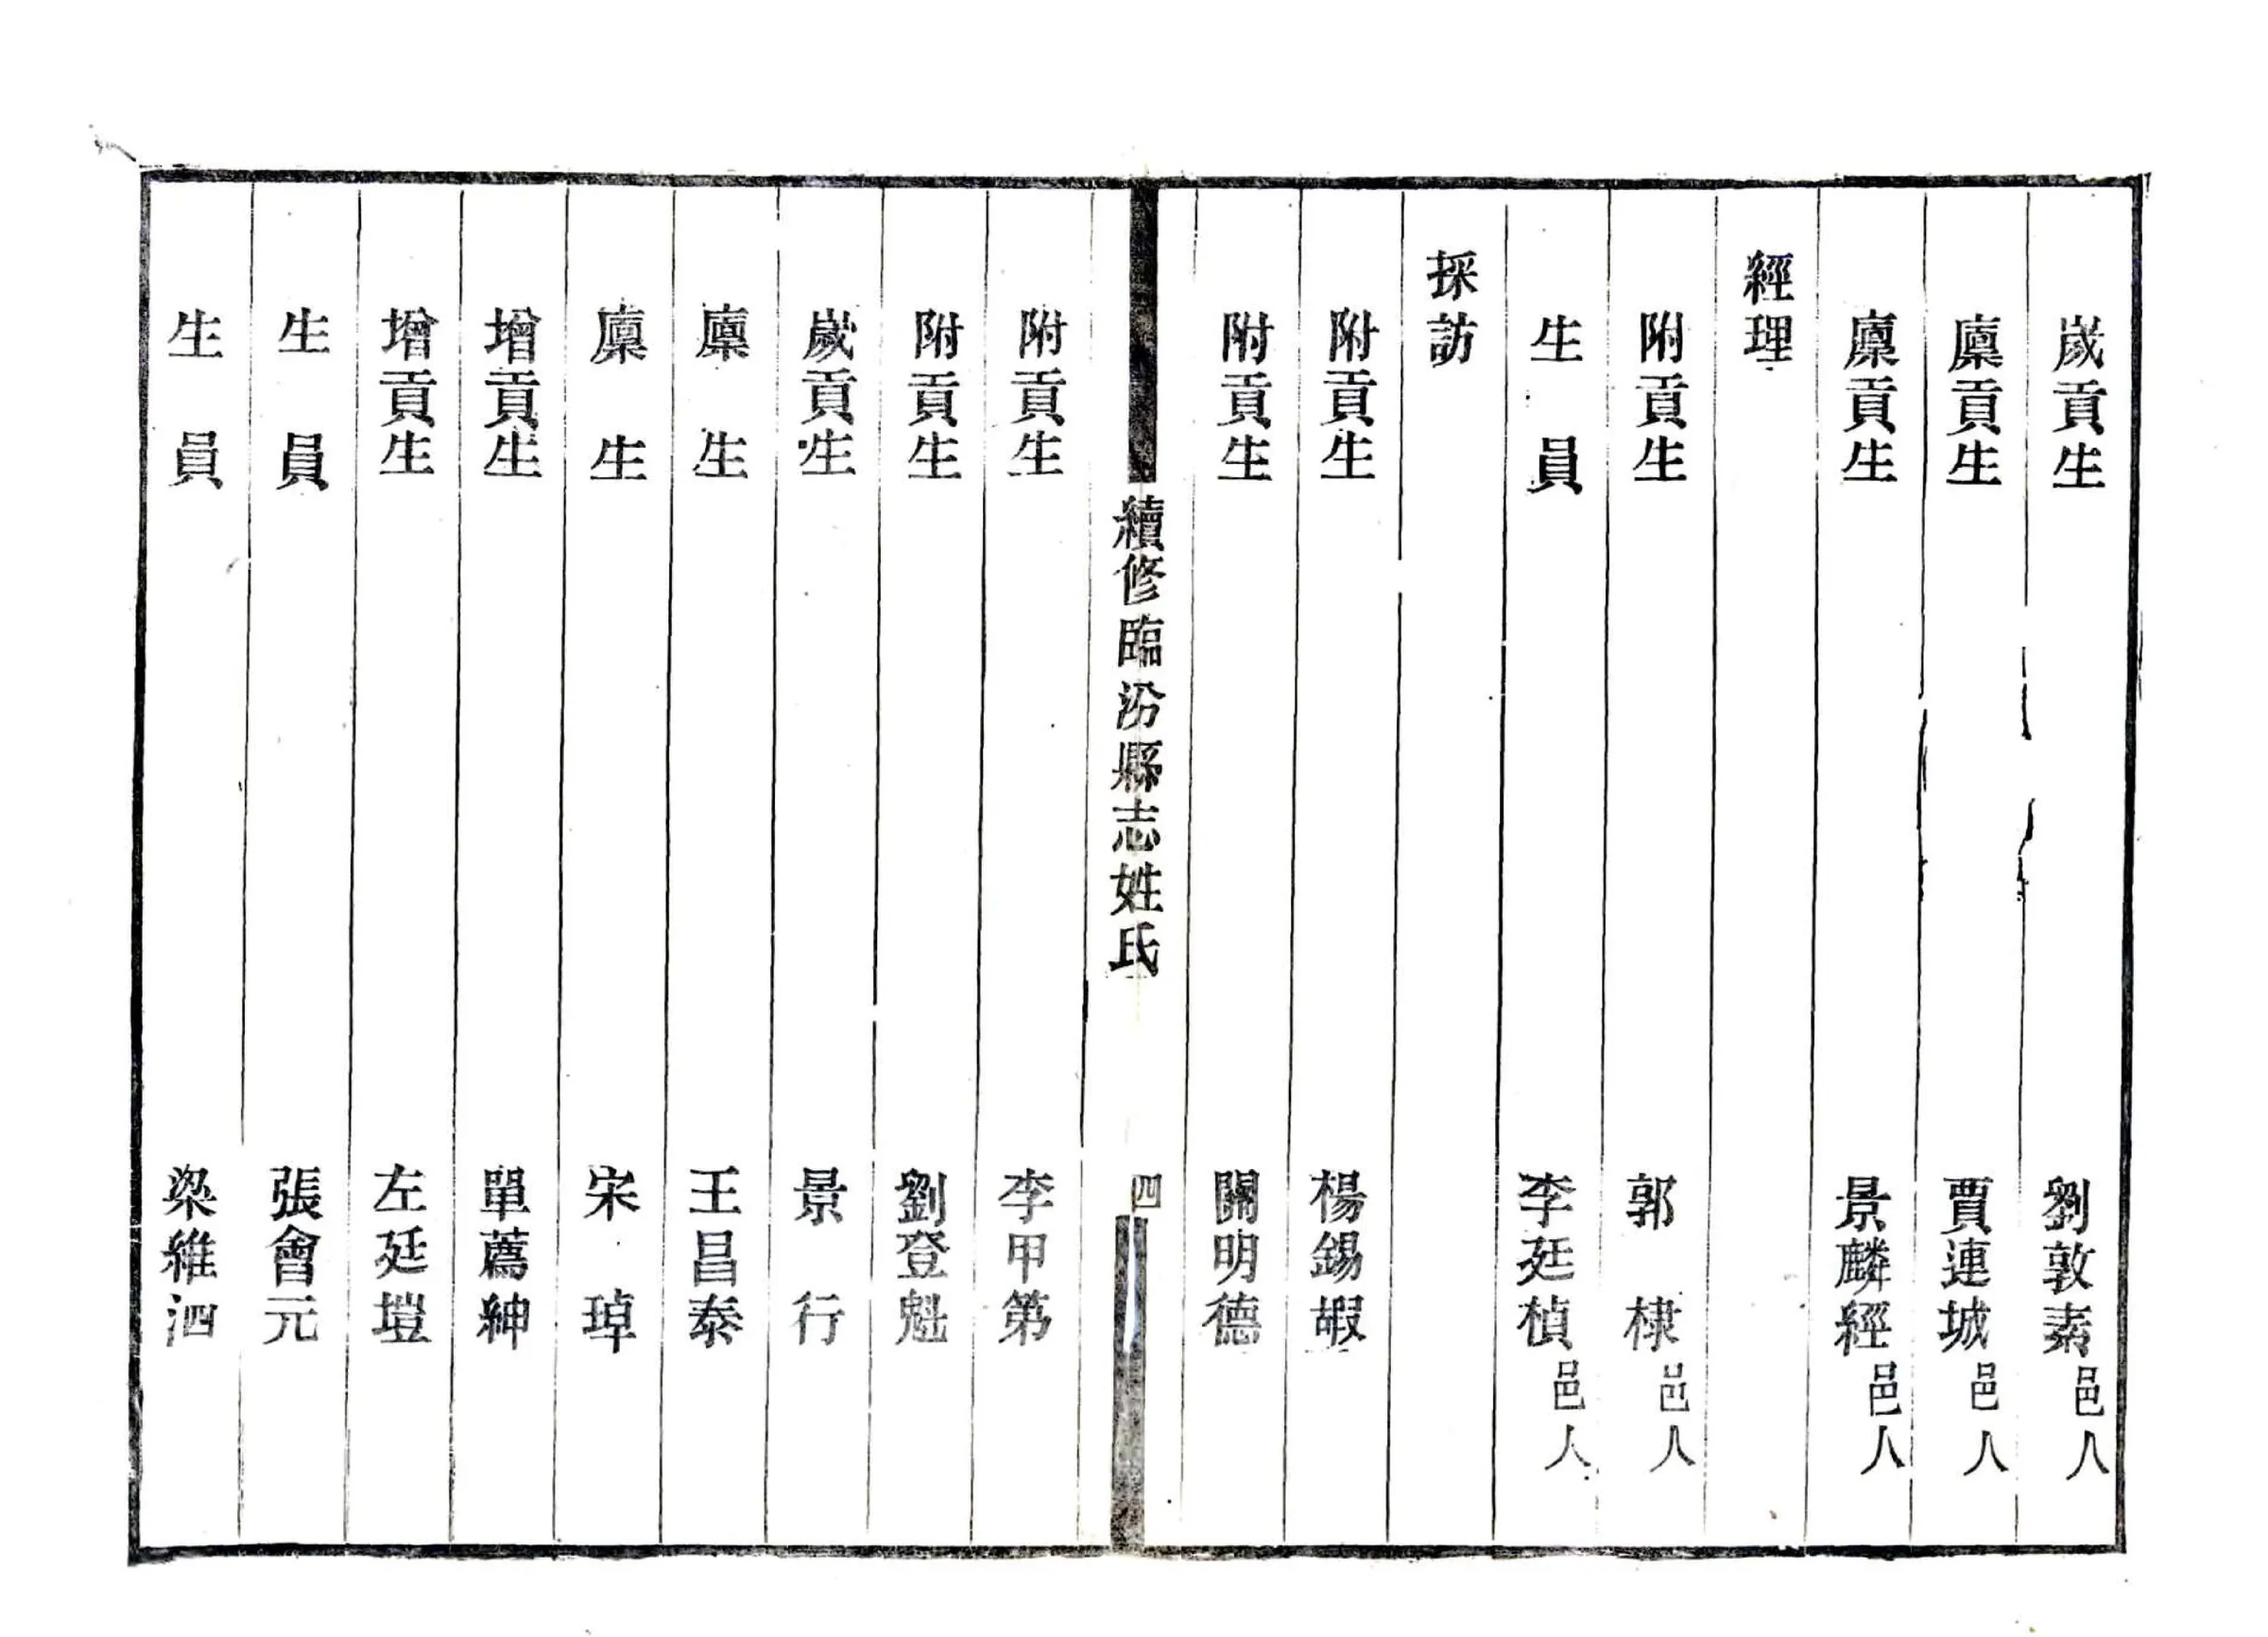 歲貢生 劉敦素邑人
廩貢生 賈連城邑人
廩貢生 景麟經邑人
經理
附貢生 郭棣邑人
生員 李廷楨邑人
採訪
附貢生 楊錫嘏
附貢生 關明德
續修臨汾縣志姓氏 四
附貢生 李甲第
附貢生 劉登魁
歲貢生 景行
廩生 王昌泰
廩生 宋琸
增貢生 單薦紳
增貢生 左廷塏
生員 張會元
生員 梁維泗